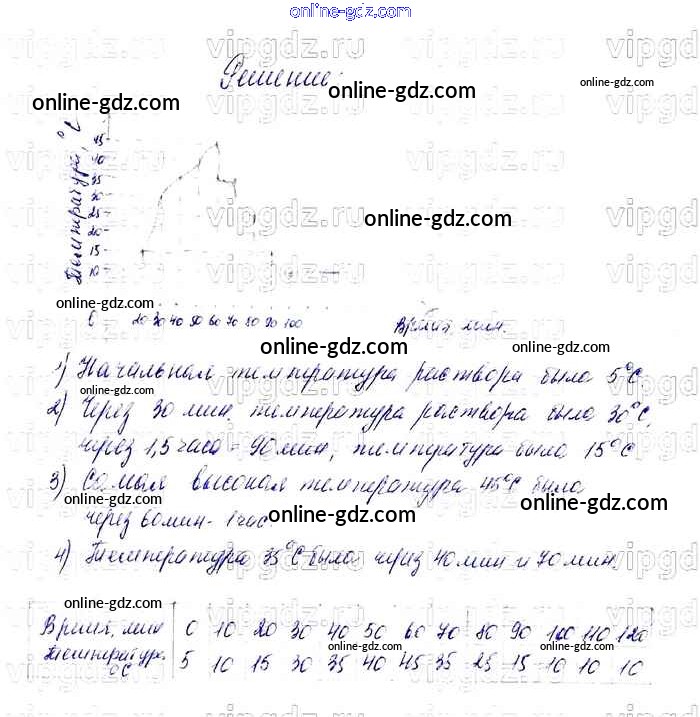 online-gdz.com
vipgdz.ru vipgdz.ru vipgdz.ru
Решение:
online-gdz.com online-gdz.com
online-gdz.com
Температура, °C
45
40
35
30
25
20
15
10
online-gdz.com
online-gdz.com
0 20 30 40 50 60 70 80 90 100
Время, мин.
online-gdz.com
1) Начальная температура раствора была 5°C.
online-gdz.com
2) Через 30 мин, температура раствора была 30°C,
online-gdz.com
через 1,5 часа - 90 мин, температура была 15°C
3) Самая высокая температура 45°C была
online-gdz.com
через 60 мин - 1 час
online-gdz.com
4) Температура 35°C была через 40 мин и 70 мин.
online-gdz.com
Время, мин 0 10 20 30 40 50 60 70 80 90 100 110 120
online-gdz.com
Температура °C 5 10 15 30 35 40 45 35 25 15 10 10 10
online-gdz.com